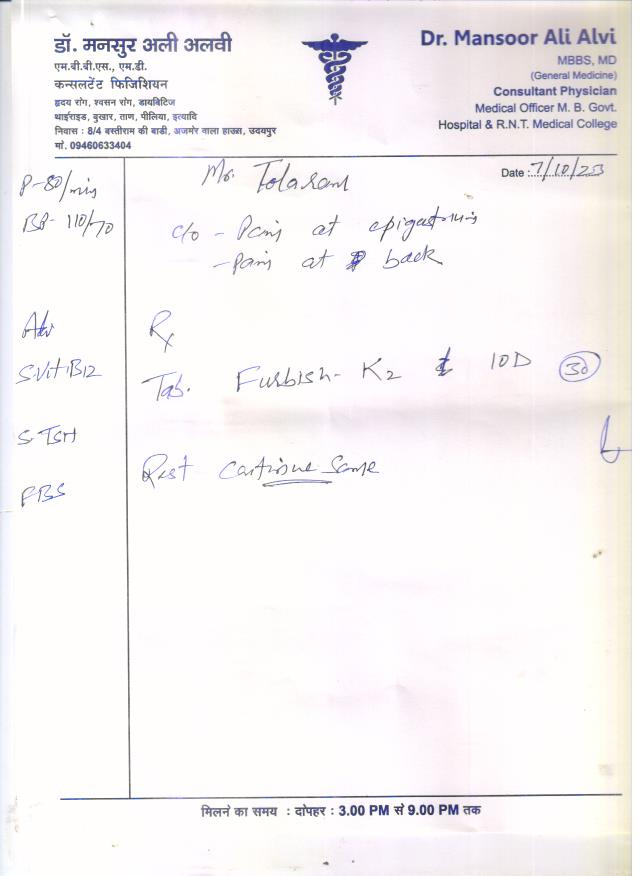 डॉ. मनसुर अली अलवी
एम.बी.बी.एस., एम.डी.
कन्सलटेंट फिजिशियन
हृदय रोग, श्वसन रोग, डायबिटिज
थाईराइड, बुखार, ताण, पीलिया, इत्यादि
निवास : 8/4 बस्तीराम की बाडी, अजमेर वाला हाउस, उदयपुर
मो. 09460633404
Dr. Mansoor Ali Alvi
MBBS, MD
(General Medicine)
Consultant Physician
Medical Officer M. B. Govt.
Hospital & R.N.T. Medical College
Date : 7/10/23
Mr. Tolaram
P-80/min
BP- 110/70
c/o - Pain at epigastrium
- Pain at back
Adv
S.Vit.B12
S.TSH
FBS
Rx
Tab. Furbish-K2 10D 30
Rest continue same
मिलने का समय : दोपहर : 3.00 PM से 9.00 PM तक